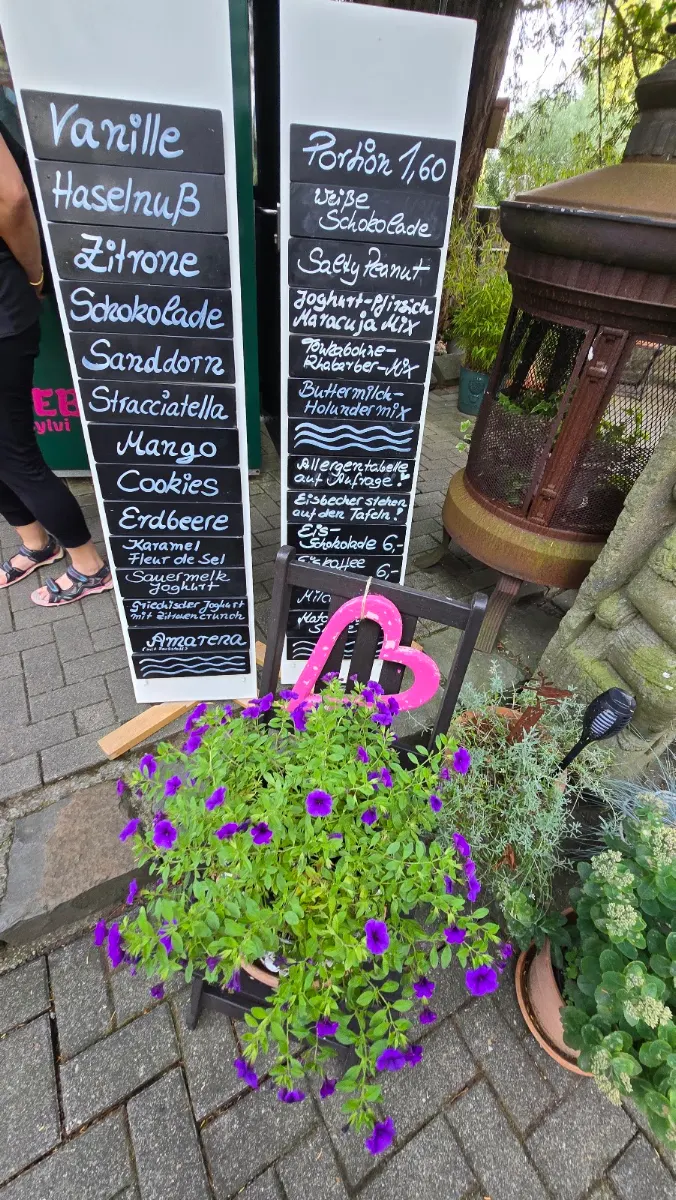 Vanille
Haselnuß
Zitrone
Schokolade
Sanddorn
Stracciatella
Mango
Cookies
Erdbeere
Karamel
Fleur de Sel
Sauermelk
Joghurt
Griechischer Joghurt
mit Zitronencrunch
Amarena
Portion 1,60
Weiße
Schokolade
Salty Peanut
Joghurt-Pfirsich
Maracuja Mix
Tonkabohne-
Rhabarber-Mix
Buttermilch-
Holundermix
Allergentabelle
auf Anfrage!
Eisbecher stehen
auf den Tafeln!
Eis-
Schokolade 6,-
Eiskaffee 6,-